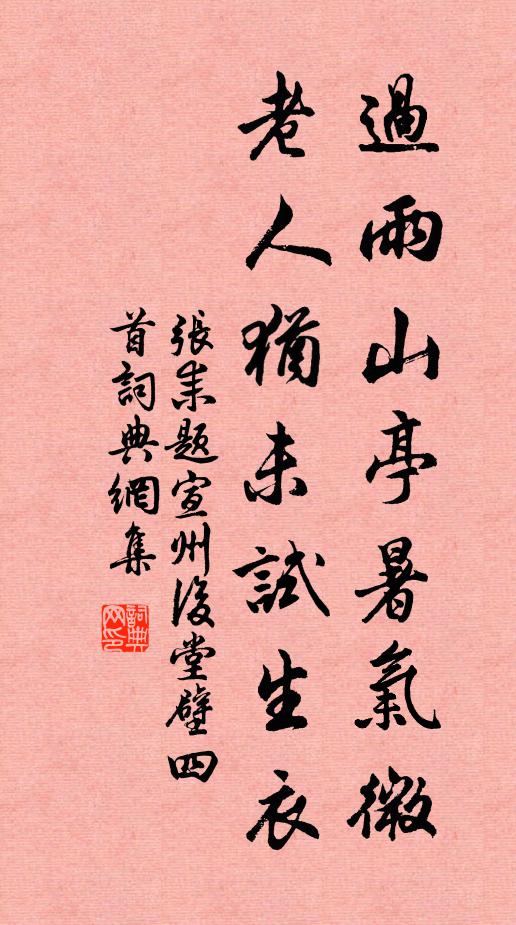 過雨山亭暑氣微
老人猶未試生衣
張耒題宣州後堂壁四
首詞典網集
詞典
网印